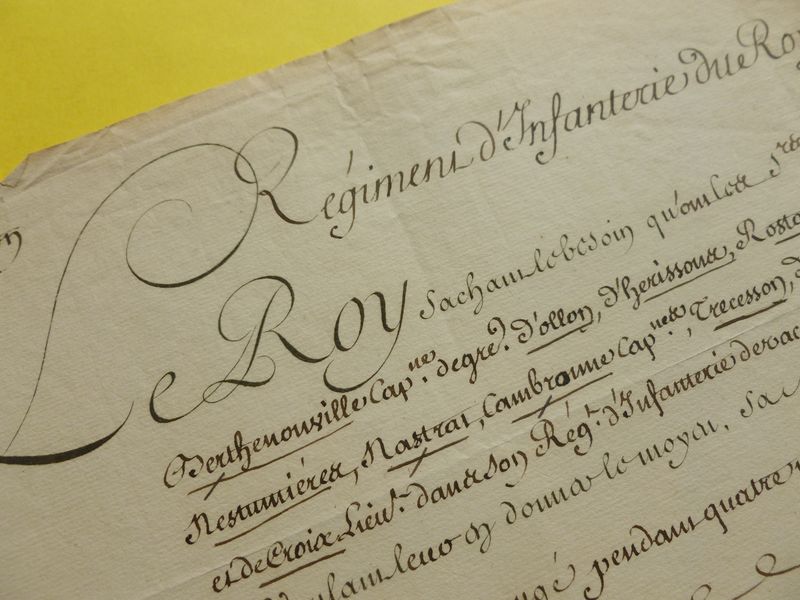 Régiment d'Infanterie du Roy
Le Roy sachant le besoin qu'ont les Srs
Berthenonville Capne. de gre. d'ollon, d'herissons, Rosta
Nestumiéres, Nastrat, Cambronne Capnes, Trecesson, d
et de Croix Lieut. dans son Régt. d'Infanterie de vac
Voulant leur donner le moyen, Sa
congé pendant quatre